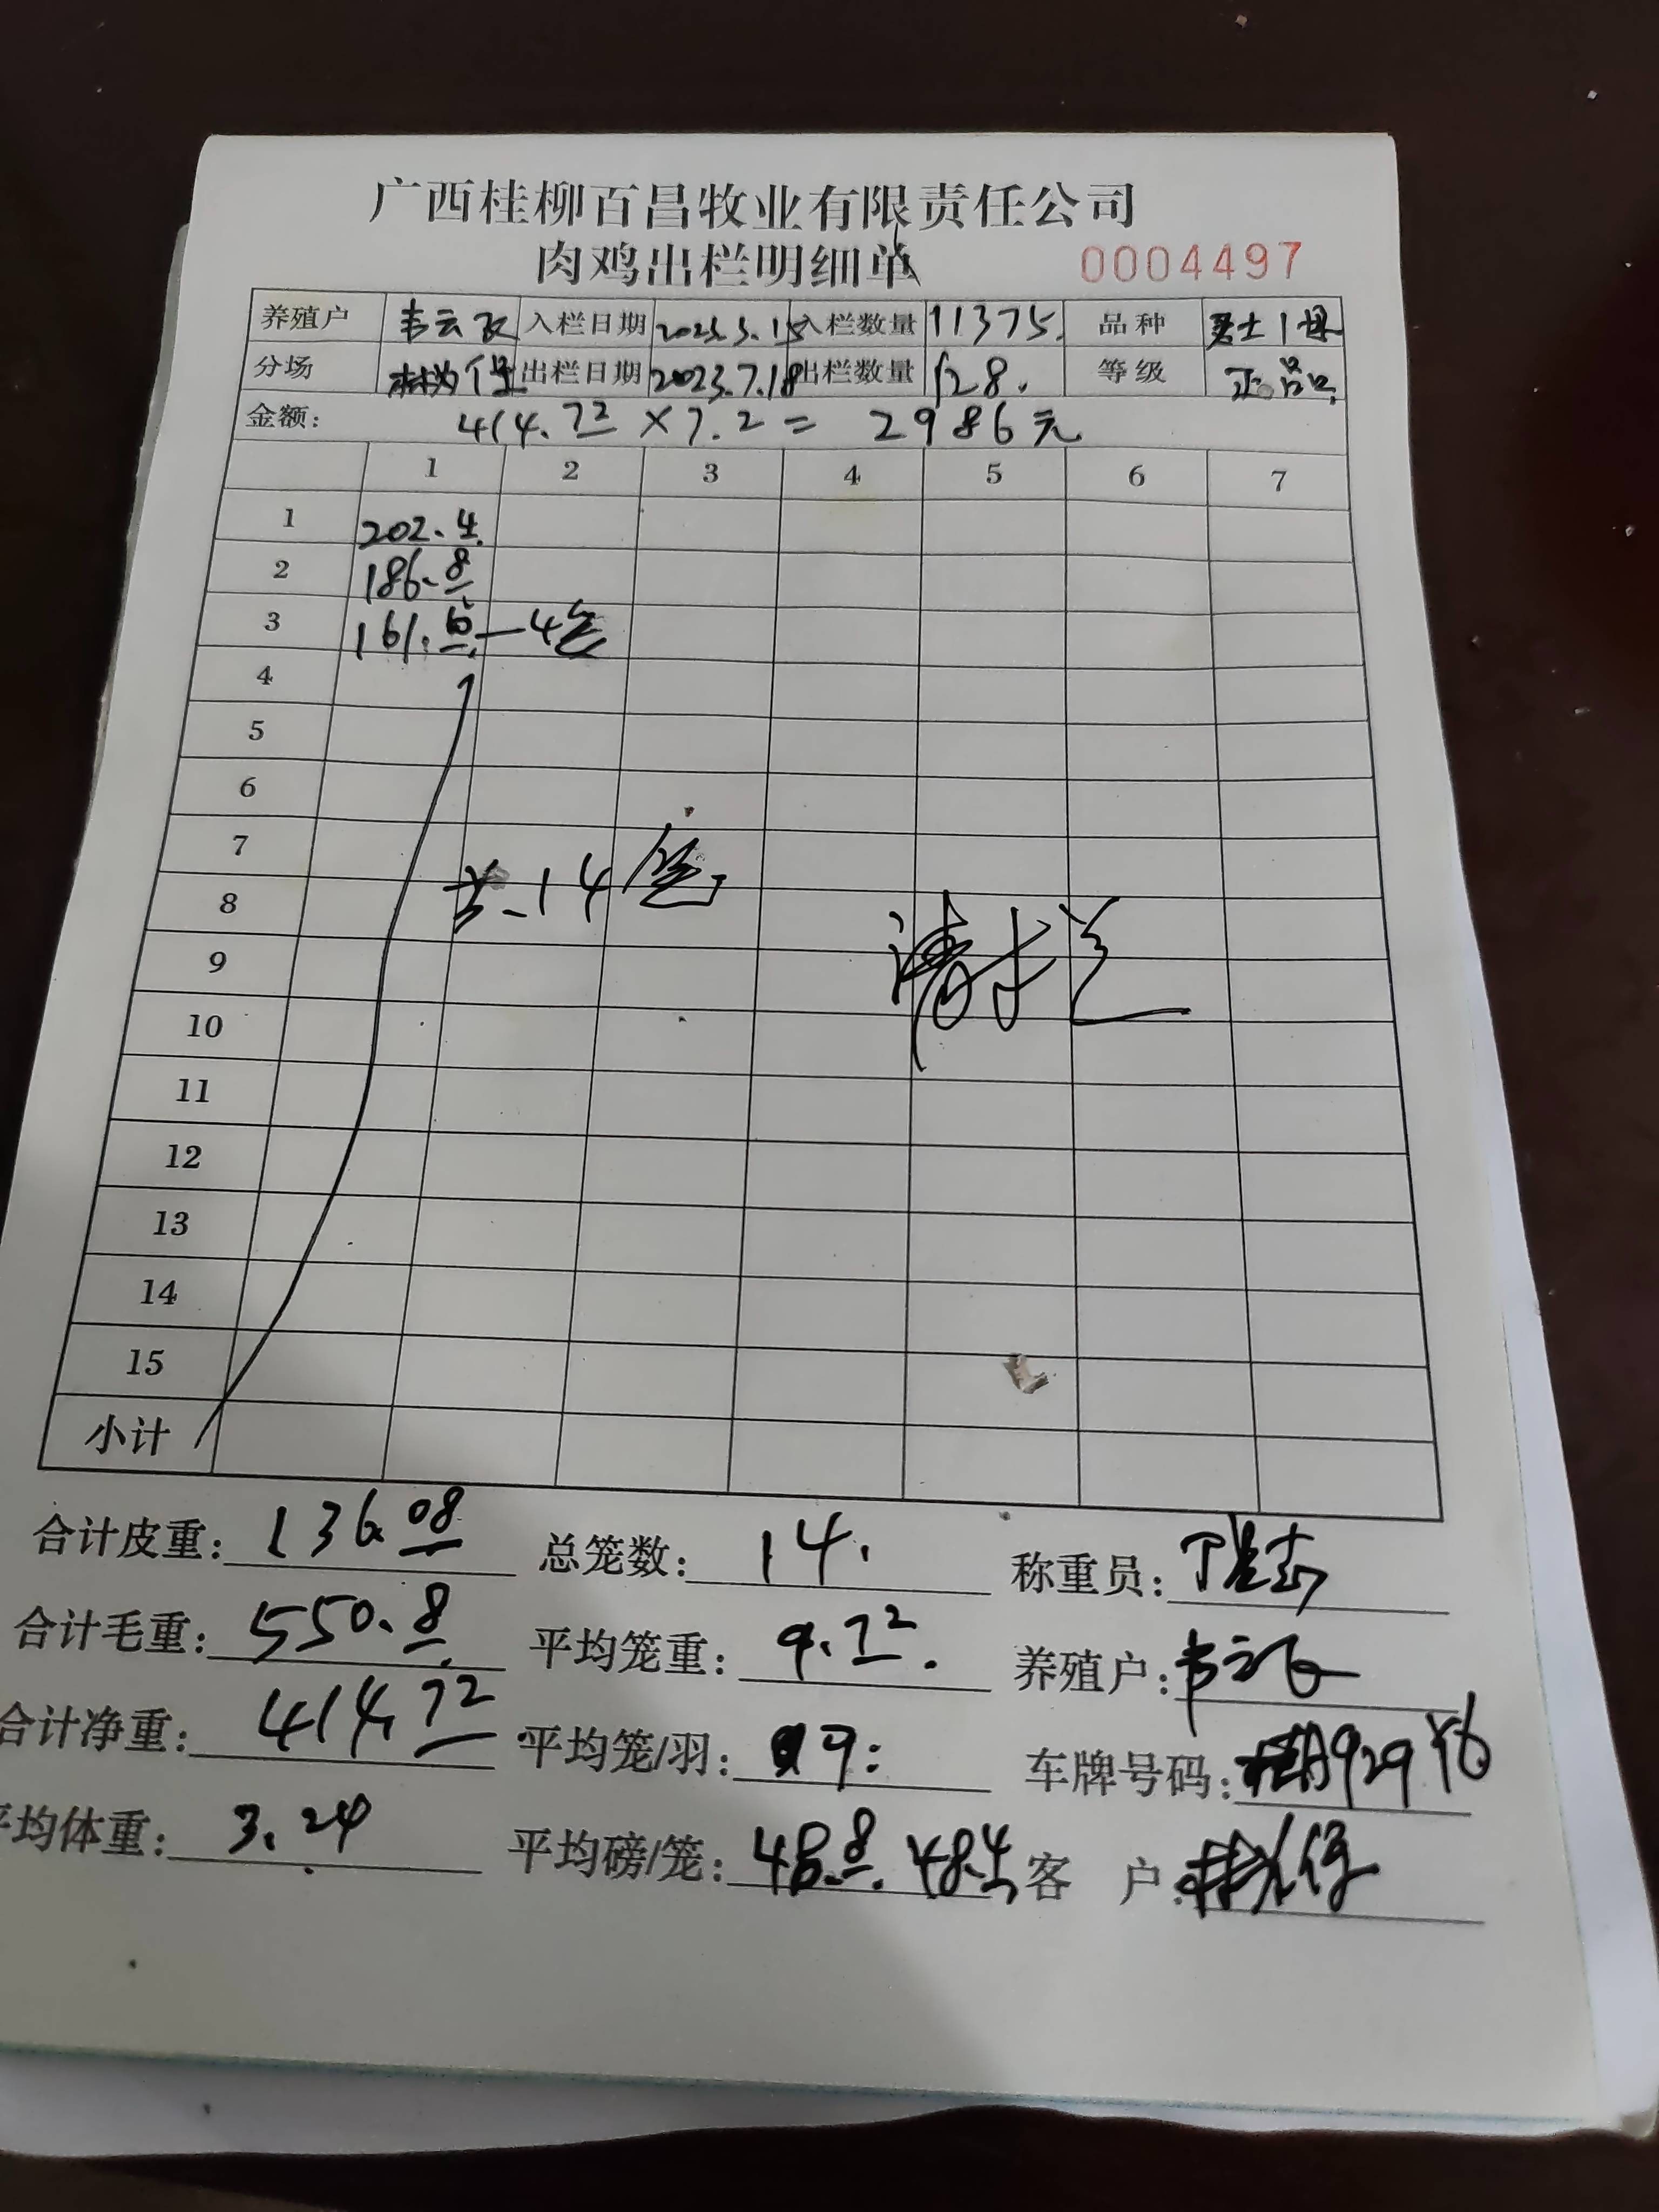 广西桂柳百昌牧业有限责任公司
肉鸡出栏明细单 0004497
养殖户 韦云 入栏日期 2023.3.15 入栏数量 11375. 品种
分场 出栏日期 2023.7.18 出栏数量 128. 等级 正品
金额: 414.72×7.2=2986元
1 2 3 4 5 6 7
1 202.4
2 186.8
3 161.6—4笼
4
5
6
7
共14笼
8
清栏
9
10
11
12
13
14
15
小计
合计皮重: 136.08 总笼数: 14. 称重员:
合计毛重: 550.8 平均笼重: 9.72. 养殖户: 韦云
合计净重: 414.72 平均笼/羽: 9 车牌号码:
平均体重: 3.24 平均磅/笼: 48.8. 48.4 客 户: